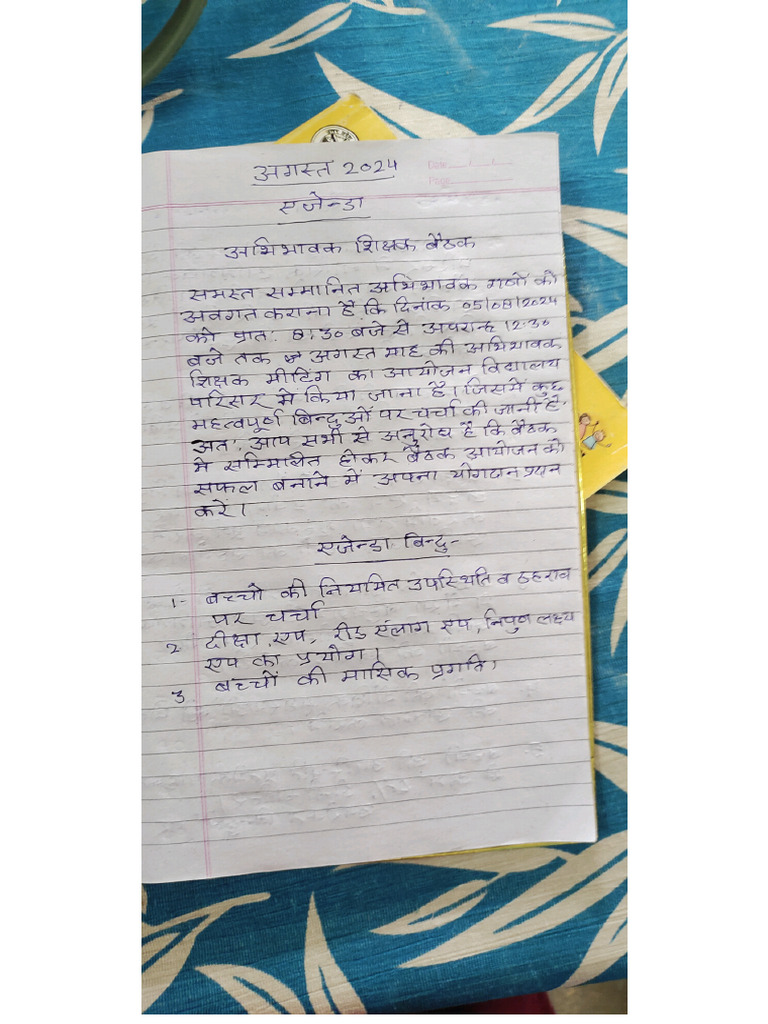 अगस्त 2024
Date
Page
एजेन्डा
अभिभावक शिक्षक बैठक
समस्त सम्मानित अभिभावक गणों को
अवगत कराना है कि दिनांक 05/08/2024
को प्रातः 8:30 बजे से अपरान्ह 12:30
बजे तक अगस्त माह की अभिभावक
शिक्षक मीटिंग का आयोजन विद्यालय
परिसर में किया जाना है। जिसमे कुछ
महत्वपूर्ण बिन्दुओं पर चर्चा की जानी है,
अतः आप सभी से अनुरोध है कि बैठक
मे सम्मिलित होकर बैठक आयोजन को
सफल बनाने में अपना योगदान प्रदान
करें।
एजेन्डा बिन्दु-
1- बच्चो की नियमित उपस्थिति व ठहराव
पर चर्चा
2 दीक्षा एप, रीड संलाग एप, निपुण लक्ष्य
एप का प्रयोग।
3 बच्चों की मासिक प्रगति।